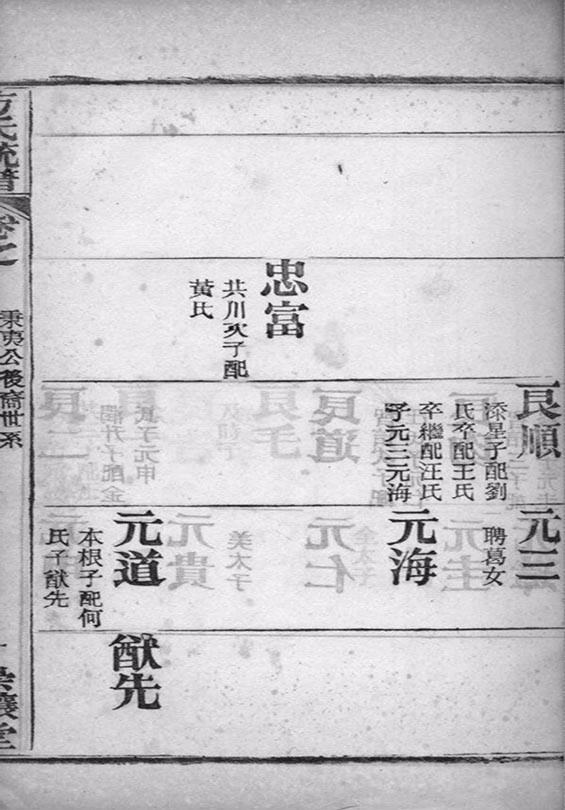 忠富
共川次子配
黃氏
良順
添星子配劉
氏卒配王氏
卒繼配汪氏
子元三元海
元三
聘葛女
元海
元道
本根子配何
氏子猷先
猷先
方氏統譜
卷之
秉夷公後裔世系